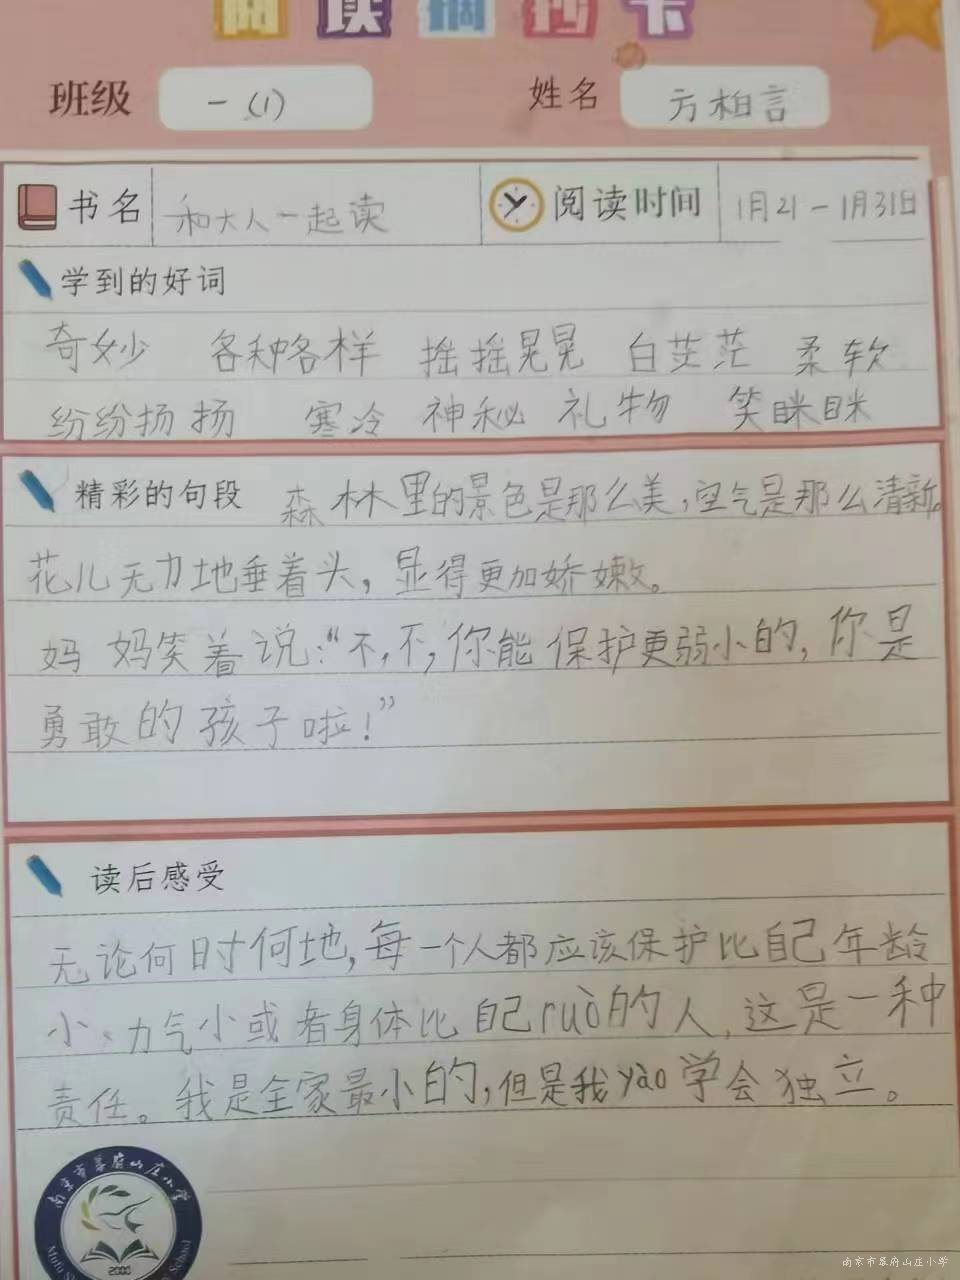 阅读摘抄卡
班级 一(1) 姓名 方柏言
书名 和大人一起读 阅读时间 1月21-1月31日
学到的好词
奇妙 各种各样 摇摇晃晃 白茫茫 柔软
纷纷扬扬 寒冷 神秘 礼物 笑眯眯
精彩的句段 森林里的景色是那么美,空气是那么清新。
花儿无力地垂着头,显得更加娇嫩。
妈妈笑着说:“不,不,你能保护更弱小的,你是
勇敢的孩子啦!”
读后感受
无论何时何地,每一个人都应该保护比自己年龄
小、力气小或者身体比自己ruò的人,这是一种
责任。我是全家最小的,但是我yào学会独立。
南京市幕府山庄小学
2000
南京市幕府山庄小学